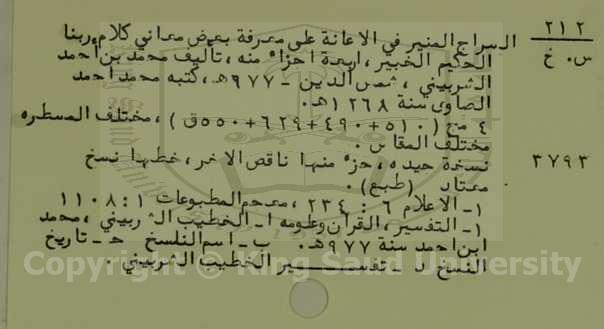 ٢١٢
س . خ
السراج المنير في الاعانة على معرفة بعض معاني كلام ربنا
الحكيم الخبير ، اربعة اجزاء منه ، تأليف محمد بن احمد
الشربيني ، شمس الدين - ٩٧٧هـ ، كتبه محمد احمد
الصاوى سنة ١٢٦٨هـ .
٤ مج ( ٥١٠ + ٤٩٠ + ٦٢٩ + ٥٥٠ ق ) ، مختلف المسطره
مختلف المقاس .
٣٧٩٣
نسخة جيده ، جزء منها ناقص الاخر ، خطها نسخ
معتاد . (طبع) .
١ـ الاعلام ٦ : ٢٣٤ ، معجم المطبوعات ١ : ١١٠٨
١ـ التفسير ، القرآن وعلومه أ ـ الخطيب الشربيني ، محمد
ابن احمد سنة ٩٧٧هـ . ب ـ اسم الناسخ جـ ـ تاريخ
النسخ د ـ تفسير الخطيب الشربيني .
Copyright © King Saud University